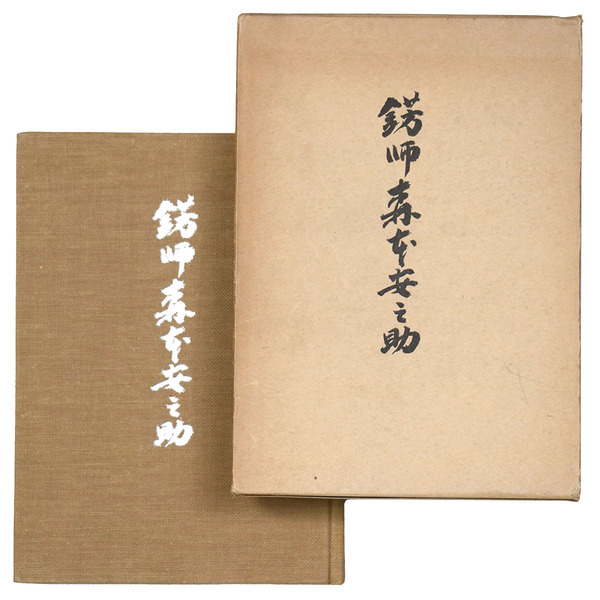 錺師森本安之助
錺師森本安之助